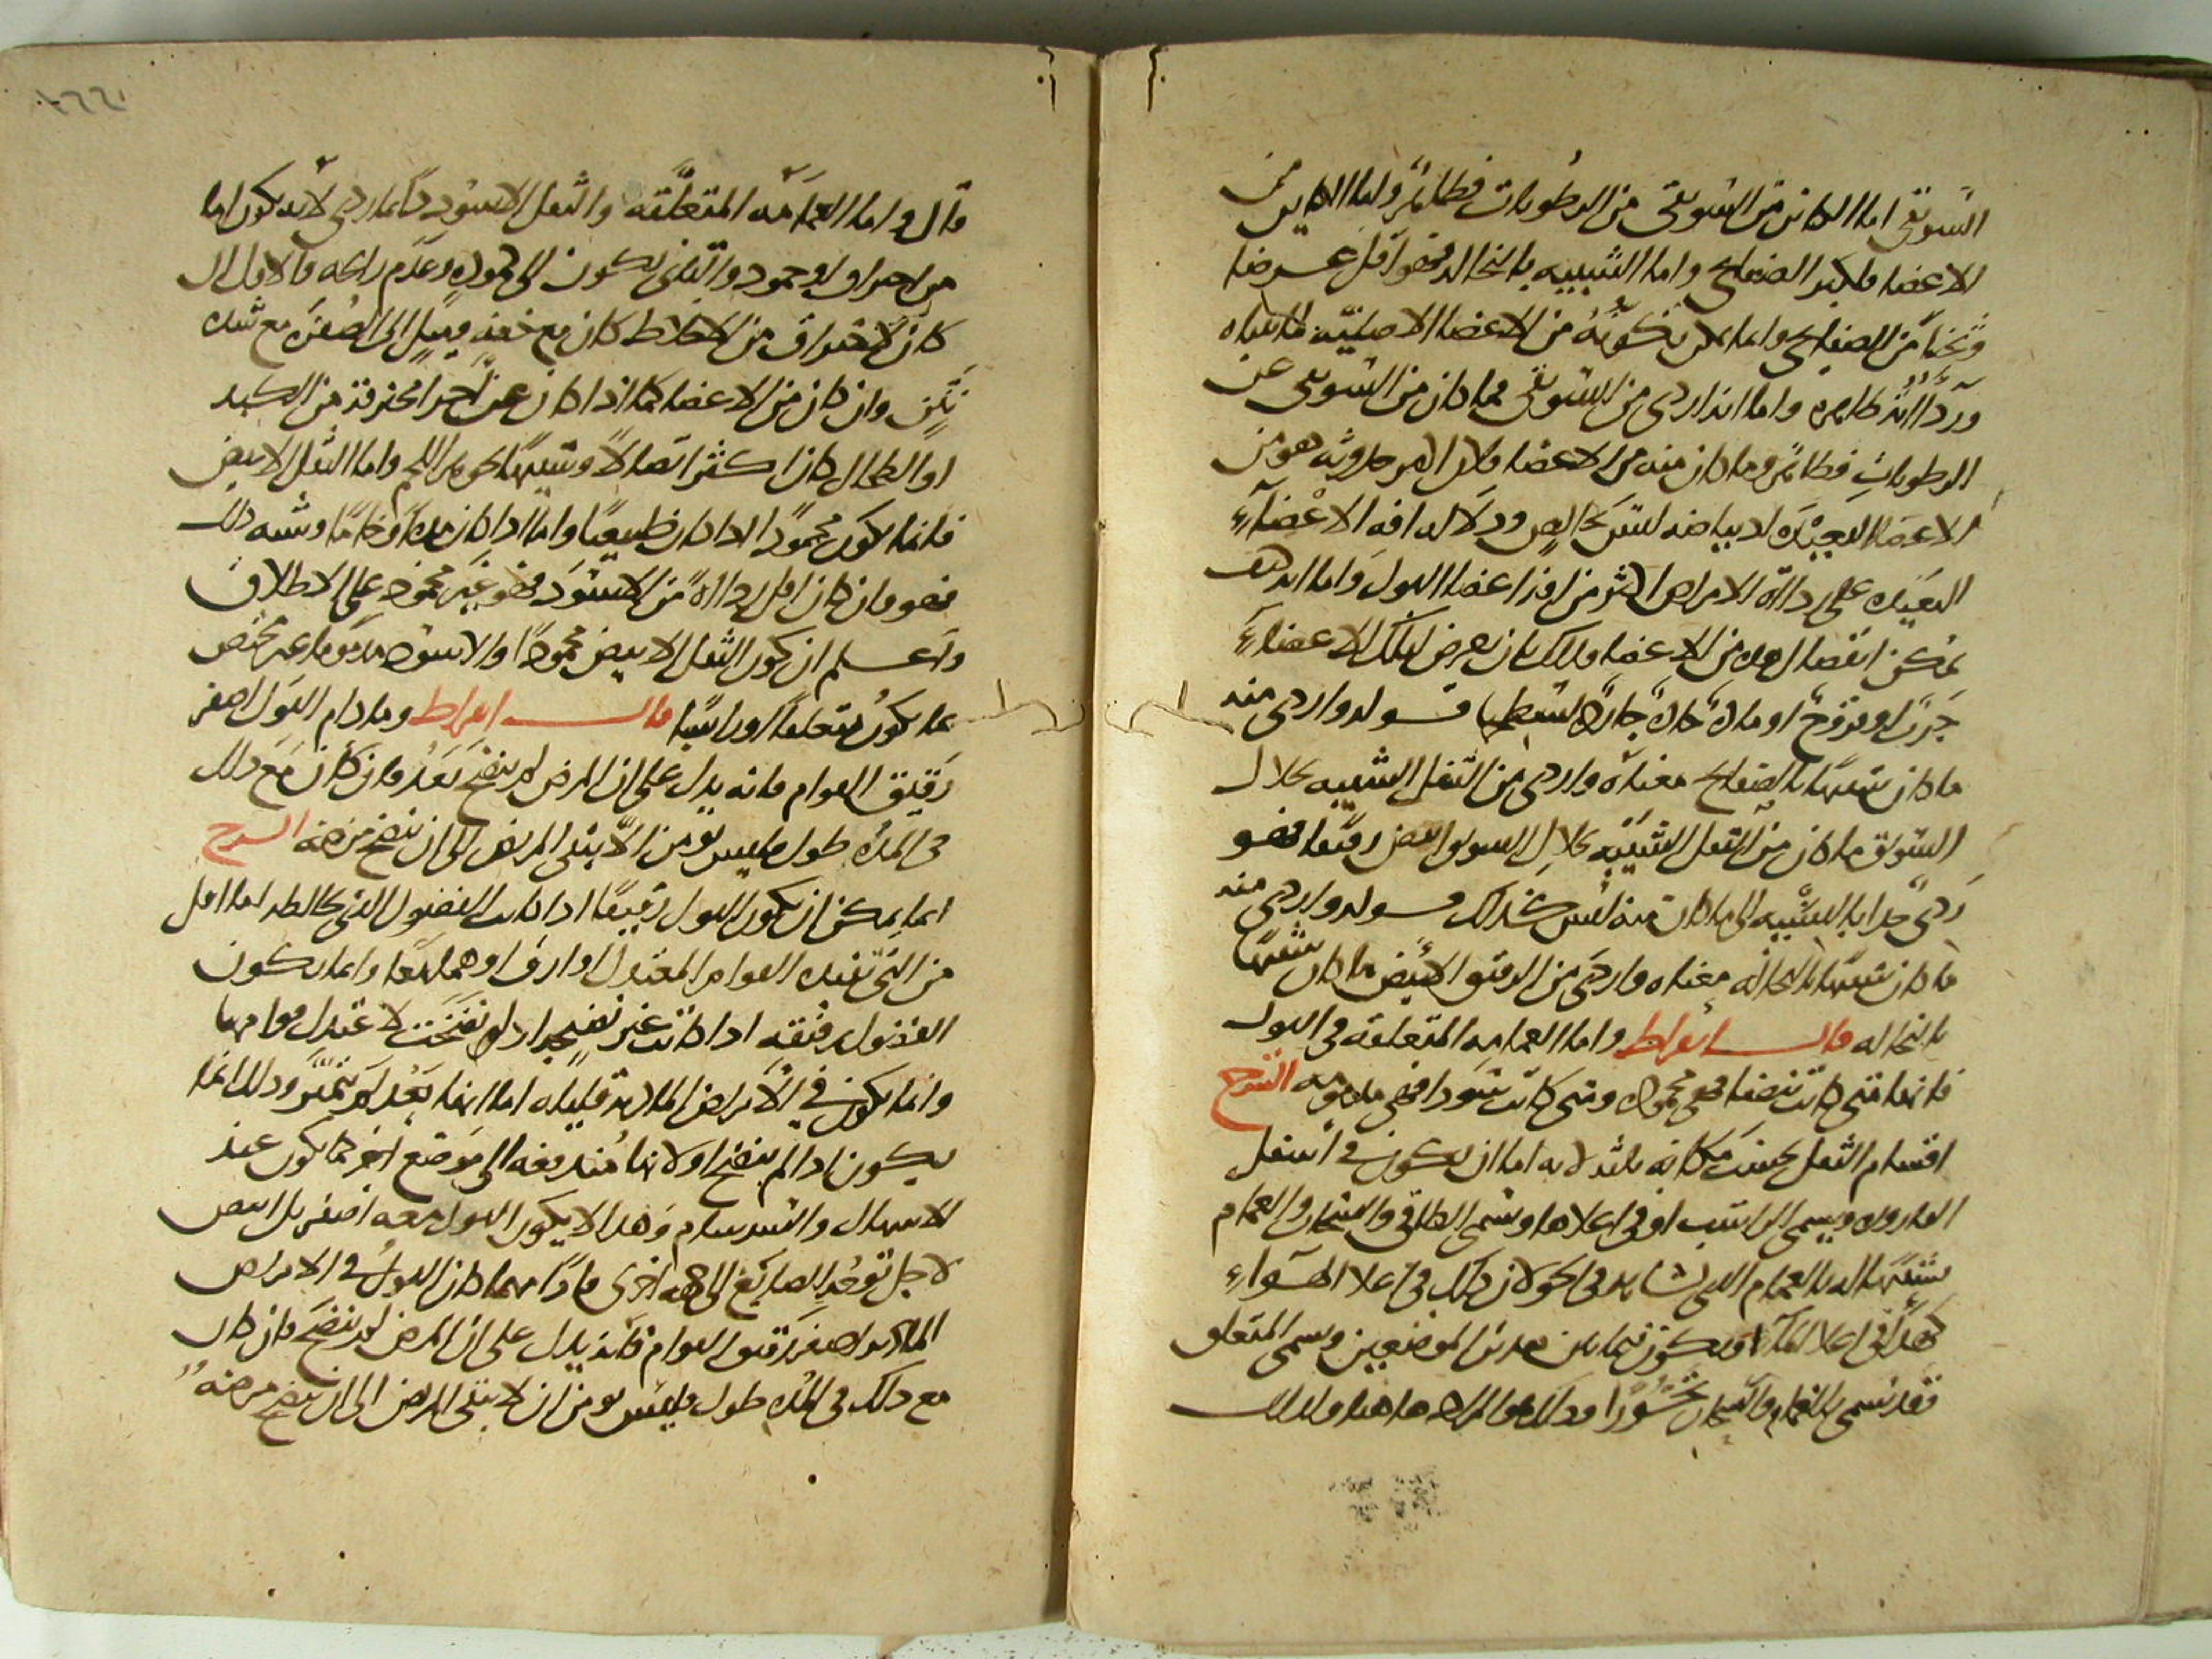 السويق اما الكائن من السويقى من الرطوبات فظاهر واما الكاين من
الاعضا فلكبر الصفايح واما الشبيه بالنخاله فهو اقل عرضا
وثخنا من الصفايح واما تكونه من الاعضا الاصلية
ورداءته ظاهره واما انه اردى من السويقى فما كان من السويقى عن
الرطوبات فظاهر وما كان منه من الاعضا هو من
الاعضا البعيده لبياضه ودلاله افه الاعضاء
البعيده على رداءة الامراض اكثر من افه اعضا البول واما انه هل
يمكن انفصال هذه من الاعضا فذلك بان يعرض لتلك الاعضاء
جرب او قروح او ماده حاده قوله واردى منه
ما كان شبيها بالصفايح معناه واردى من الثفل الشبيه بجلال
السويق ما كان من الثفل الشبيه بجلال السويق ابيض رقيقا فهو
ردى جدا بالنسبه الى ما كان منه ليس كذلك قوله واردى منه
ما كان شبيها بالنخاله معناه واردى من الرقيق الابيض ما كان شبيها
بالنخاله قال ابقراط واما الغمامه المتعلقه فى البول
فانها متى كانت بيضا فهى محموده ومتى كانت سودا فهى مذمومه الشرح
اقسام الثفل بحسب مكانه ثلثه لانه اما ان يكون فى اسفل
القاروره ويسمى الراسب او فى اعلاها ويسمى الطافى والسحاب والغمام
تشبيها له بالغمام الذى نشاهده فى الجو لان ذلك فى اعلا الهواء
كهذا فى اعلا الماء او يكون فيما بين هذين الموضعين ويسمى المتعلق
فقد يسمى بالغمام والسحاب تجوزا وذلك هو المراد هاهنا ولذلك
قال واما الغمامه المتعلقه والثفل الاسود دايما ردى لانه يكون اما
من احتراق او جمود والثانى يكون الى كموده وعدم رائحه والاول ان
كان لاحتراق من الاخلاط كان مع خفه وميل الى الصفره مع شده
نتن وان كان من الاعضا كما اذا كان عن اجزا محترقه من الكبد
او الطحال كان اكثر اتصالا وشبيها بجوهر اللحم واما الثفل الابيض
فانما يكون محمودا اذا كان طبيعيا واما اذا كان مده او خاما وشبه ذلك
فهو وان كان اقل رداءة من الاسود فهو غير محمود على الاطلاق
واعلم ان كون الثفل الابيض محمودا والاسود مذموما غير مختص
بما يكون متعلقا او راسبا قال ابقراط وما دام البول اصفر
رقيق القوام فانه يدل على ان المرض لم ينضج بعد فان كان مع ذلك
فى المده طول فليس يومن الا يبقى المريض الى ان ينضج مرضه الشرح
انما يمكن ان يكون البول رقيقا اذا كانت الفضول التى تخالطه اما اقل
من التى تفيده القوام المعتدل او ارق او هما معا وانما يكون
الفضول رقيقه اذا كانت غير نضيجه اذ لو نضجت لاعتدل قوامها
وانما يكون فى الامراض الماديه قليله اما انها بعد لم تتميز وذلك انما
يكون اذا لم ينضج او لانها مندفعه الى موضع اخر كما يكون عند
الاسهال والسرسام وهذا لا يكون البول معه اصفر بل ابيض
لاجل توجه الصابغ الى جهه اخرى فاذا مهما كان البول فى الامراض
الماديه اصفر رقيق القوام فانه يدل على ان المرض لم ينضج فان كان
مع ذلك فى المده طول فليس يومن ان لا يبقى المريض الى ان ينضج مرضه